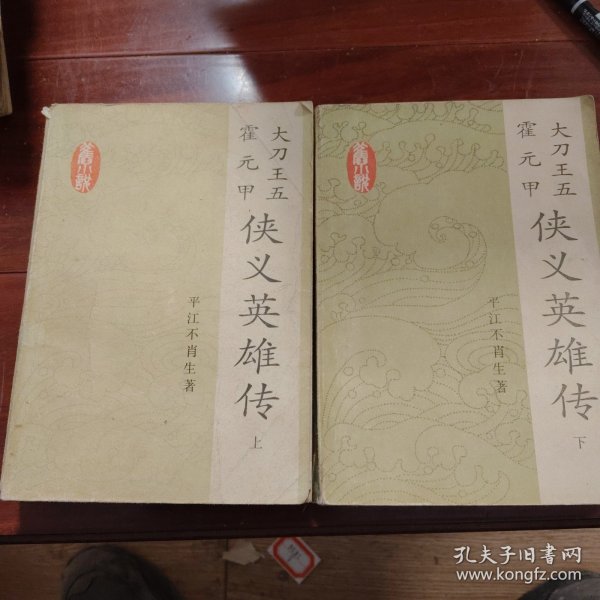 大刀王五
霍元甲
侠义英雄传
上
平江不肖生著
大刀王五
霍元甲
侠义英雄传
下
平江不肖生著
孔夫子旧书网
www.kongfz.com